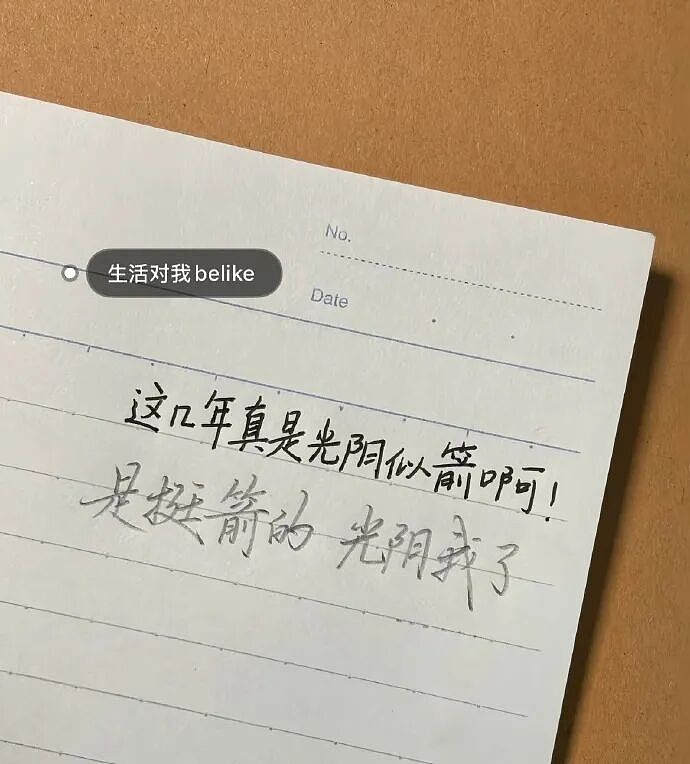 No.
生活对我belike
Date
这几年真是光阴似箭啊!
是挺箭的 光阴我了